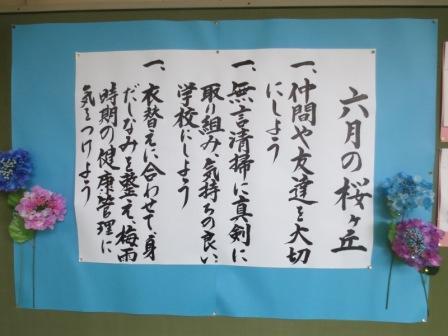 六月の桜ヶ丘
一、仲間や友達を大切
にしよう
一、無言清掃に真剣に
取り組み、気持ちの良い
学校にしよう
一、衣替えに合わせて、身
だしなみを整え、梅雨
時期の健康管理に
気をつけよう